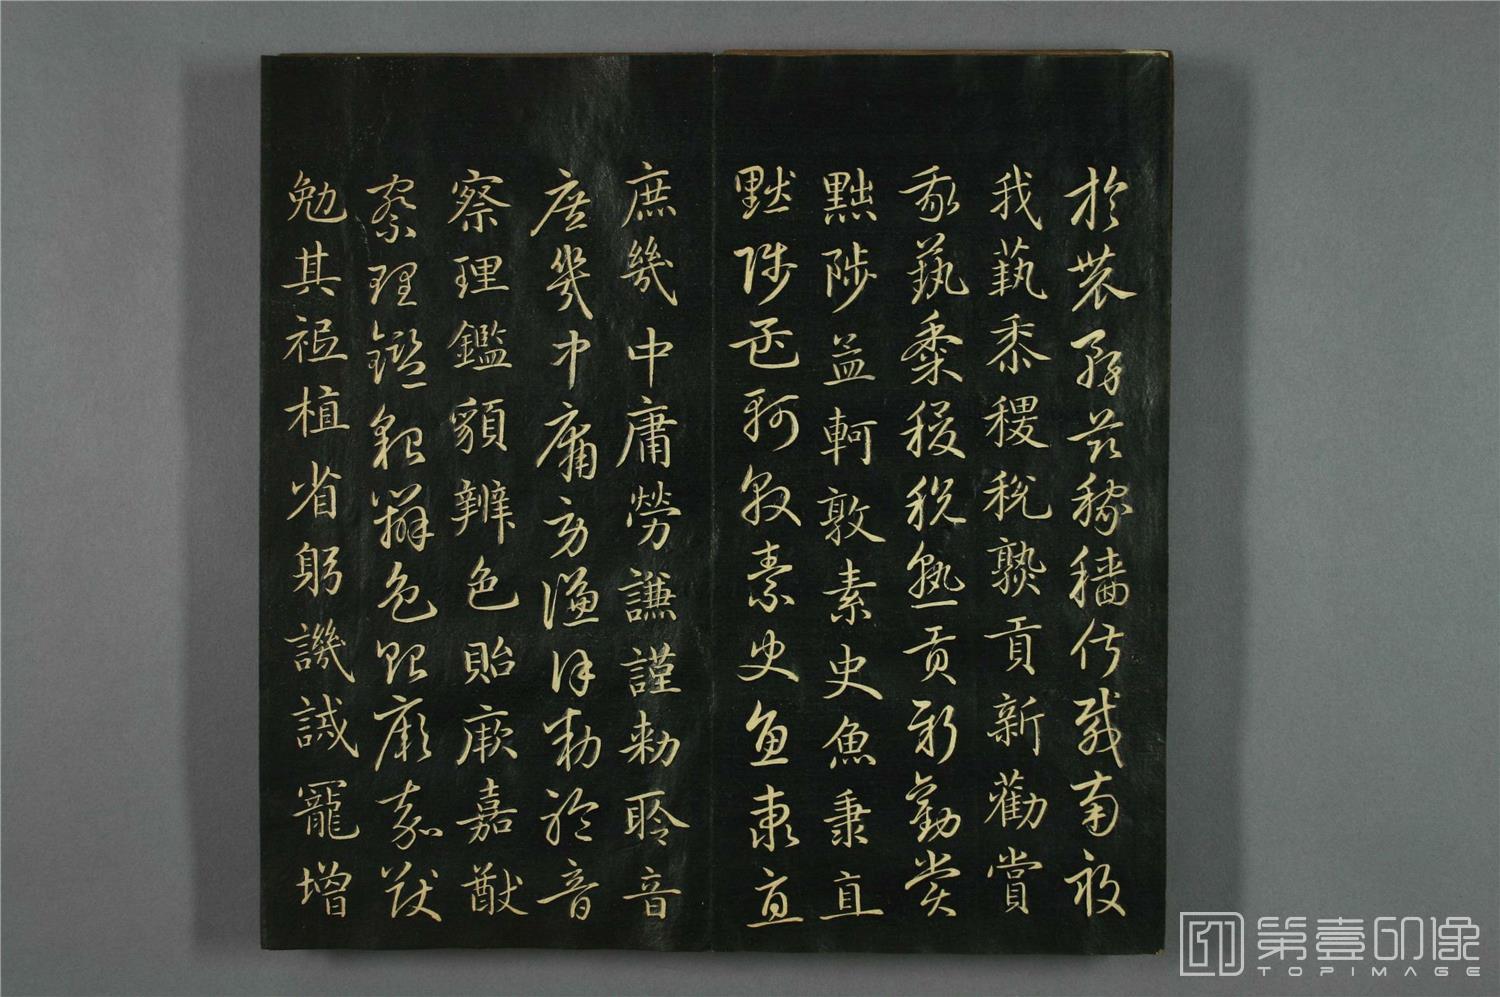 於農務茲稼穡俶載南畝
我藝黍稷稅熟貢新勸賞
我藝黍稷稅熟貢新勸賞
黜陟益軻敦素史魚秉直
黜陟孟軻敦素史魚秉直
庶幾中庸勞謙謹勅聆音
庶幾中庸勞謙謹勅聆音
察理鑑貌辨色貽厥嘉猷
察理鑑貌辨色貽厥嘉猷
勉其祗植省躬譏誡寵增
第壹印像
TOPIMAGE